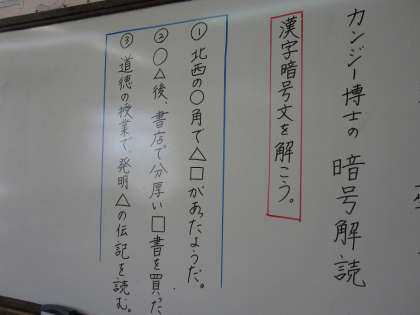 カンジー博士の暗号解読
漢字暗号文を解こう。
① 北西の○角で△□があったようだ。
② ○△後、書店で分厚い□書を買った
③ 道徳の授業で発明△の伝記を読む。